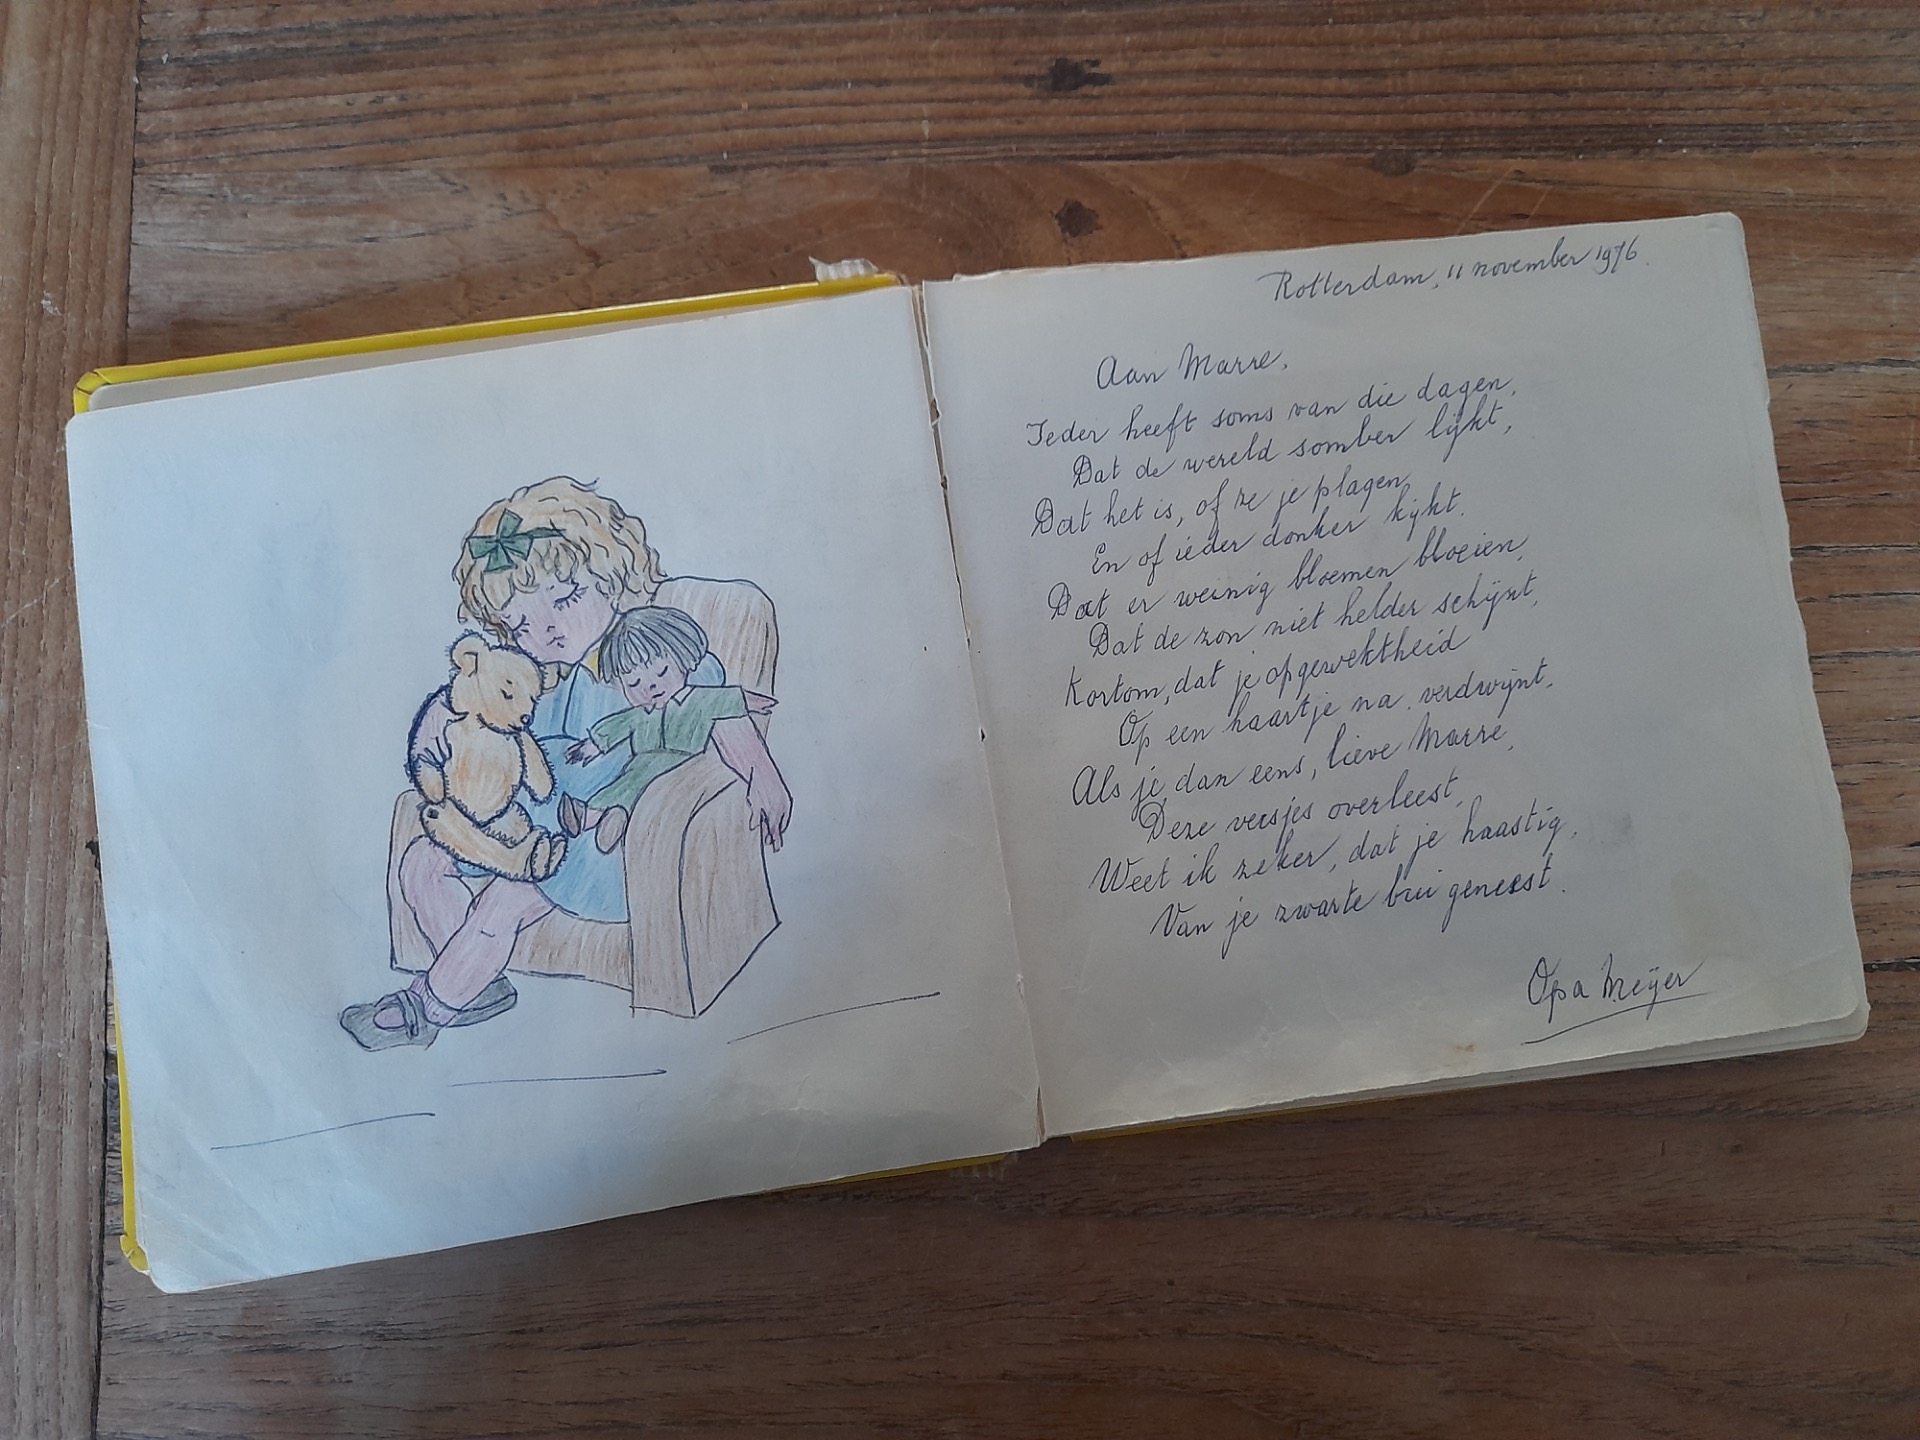 Rotterdam, 11 november 1976.
Aan Marre,
Ieder heeft soms van die dagen,
Dat de wereld somber lijkt,
Dat het is, of ze je plagen,
En of ieder donker kijkt.
Dat er weinig bloemen bloeien,
Dat de zon niet helder schijnt,
Kortom, dat je opgewektheid
Op een haartje na verdwijnt.
Als je dan eens, lieve Marre,
Deze versjes overleest,
Weet ik zeker, dat je haastig,
Van je zwarte bui geneest.
Opa Meÿer